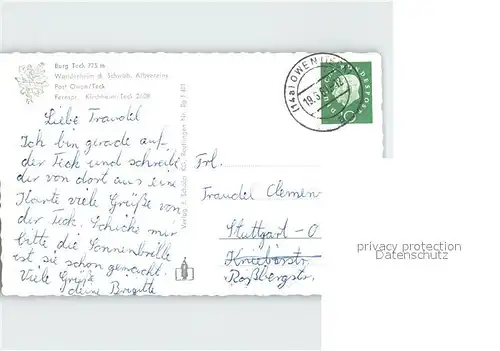 Burg Teck 775 m
Wanderheim d. Schwäb. Albvereins
Post Owen/Teck
Fernspr. Kirchheim/Teck 2608
Liebe Traudel
Ich bin gerade auf
der Teck und schreibe
dir von dort aus eine
Karte viele Grüße von
der Teck. Schicke mir
bitte die Sonnenbrille
ist sie schon gemacht.
Viele Grüße
deine Brigitte
Verlag
Reutlingen
(14a) OWEN
19.3.
BUNDESPOST
10
Frl.
Traudel Clemen
Stuttgart-O
Kniebisstr.
Roßbergstr.
privacy protection
Datenschutz